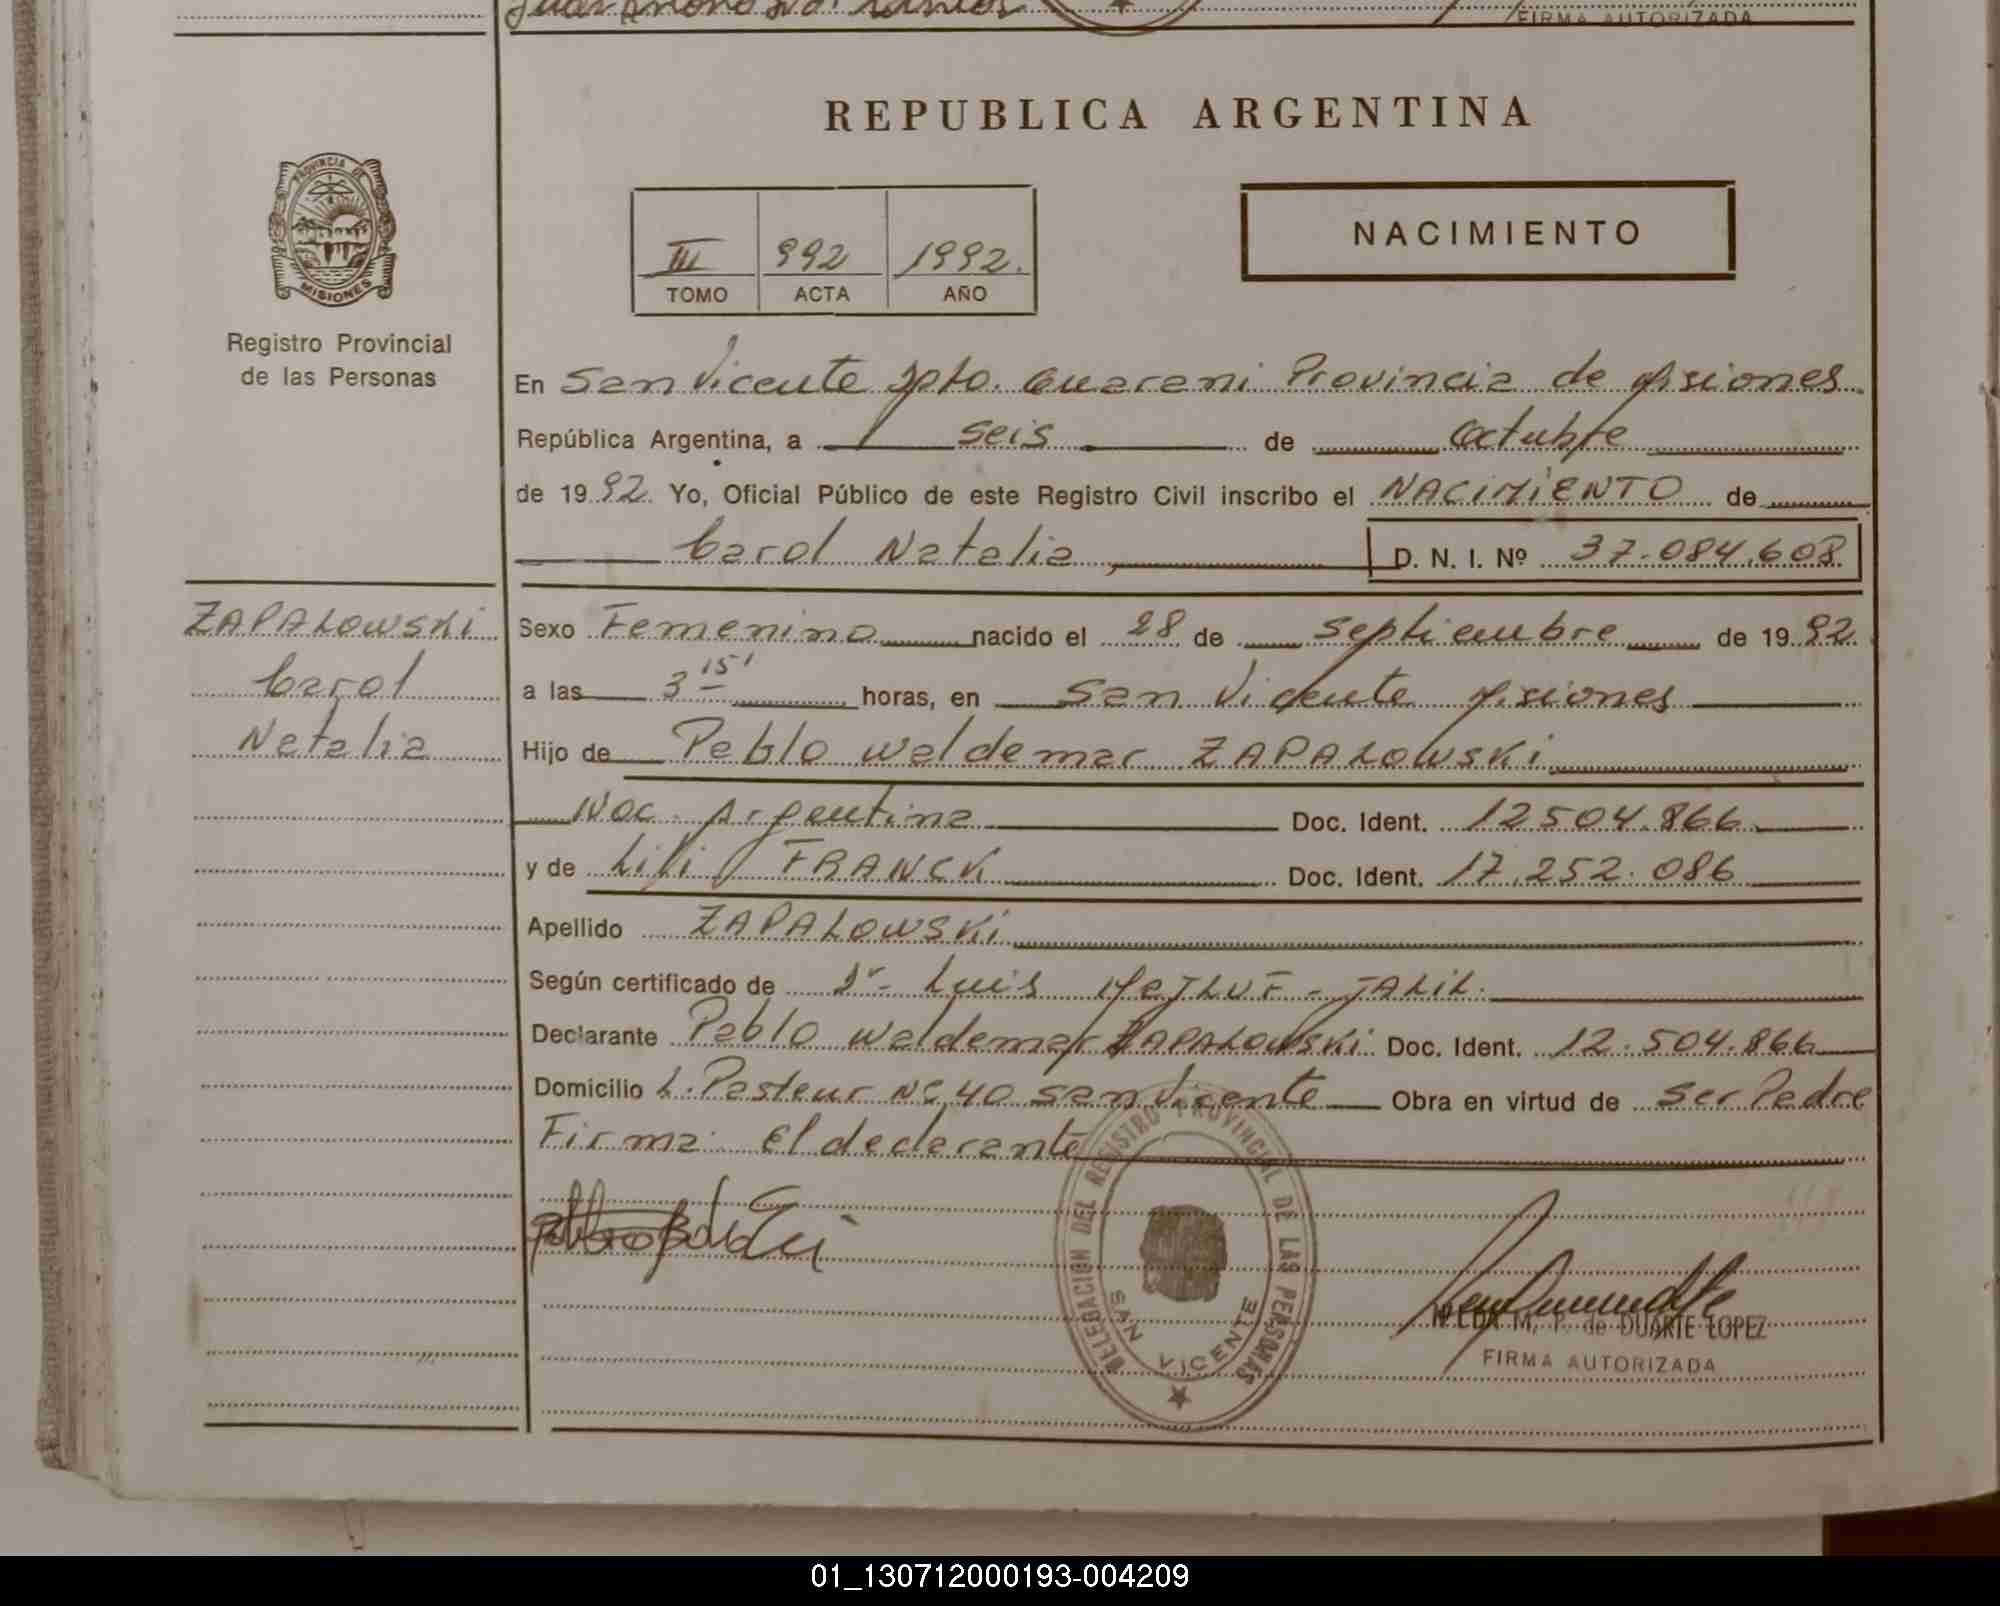 FIRMA AUTORIZADA
REPUBLICA ARGENTINA
PROVINCIA DE MISIONES
III 992 1992.
TOMO ACTA AÑO
NACIMIENTO
Registro Provincial
de las Personas
En San Vicente Dpto. Guarani Provincia de Misiones
República Argentina, a seis de Octubre
de 1992 Yo, Oficial Público de este Registro Civil inscribo el NACIMIENTO de
Carol Natalia, D. N. I. Nº 37.084.608
ZAPALOWSKi
Carol
Natalia
Sexo Femenino nacido el 28 de septiembre de 1992
a las 3 15' horas, en San Vicente Misiones
Hijo de Pablo Waldemar ZAPALOWSKi
Nac. Argentina Doc. Ident. 12504.866
y de Lili FRANCK Doc. Ident. 17.252.086
Apellido ZAPALOWSKi
Según certificado de Dr- Luis MajLUF - JALIL.
Declarante Pablo Waldemar ZAPALOWSKi Doc. Ident. 12.504.866
Domicilio L. Pasteur Nº 40 San Vicente Obra en virtud de ser Padre
Firma: El declarante
DELEGACION DEL REGISTRO PROVINCIAL DE LAS PERSONAS
SAN VICENTE
M. P. de DUARTE LOPEZ
FIRMA AUTORIZADA
01_130712000193-004209